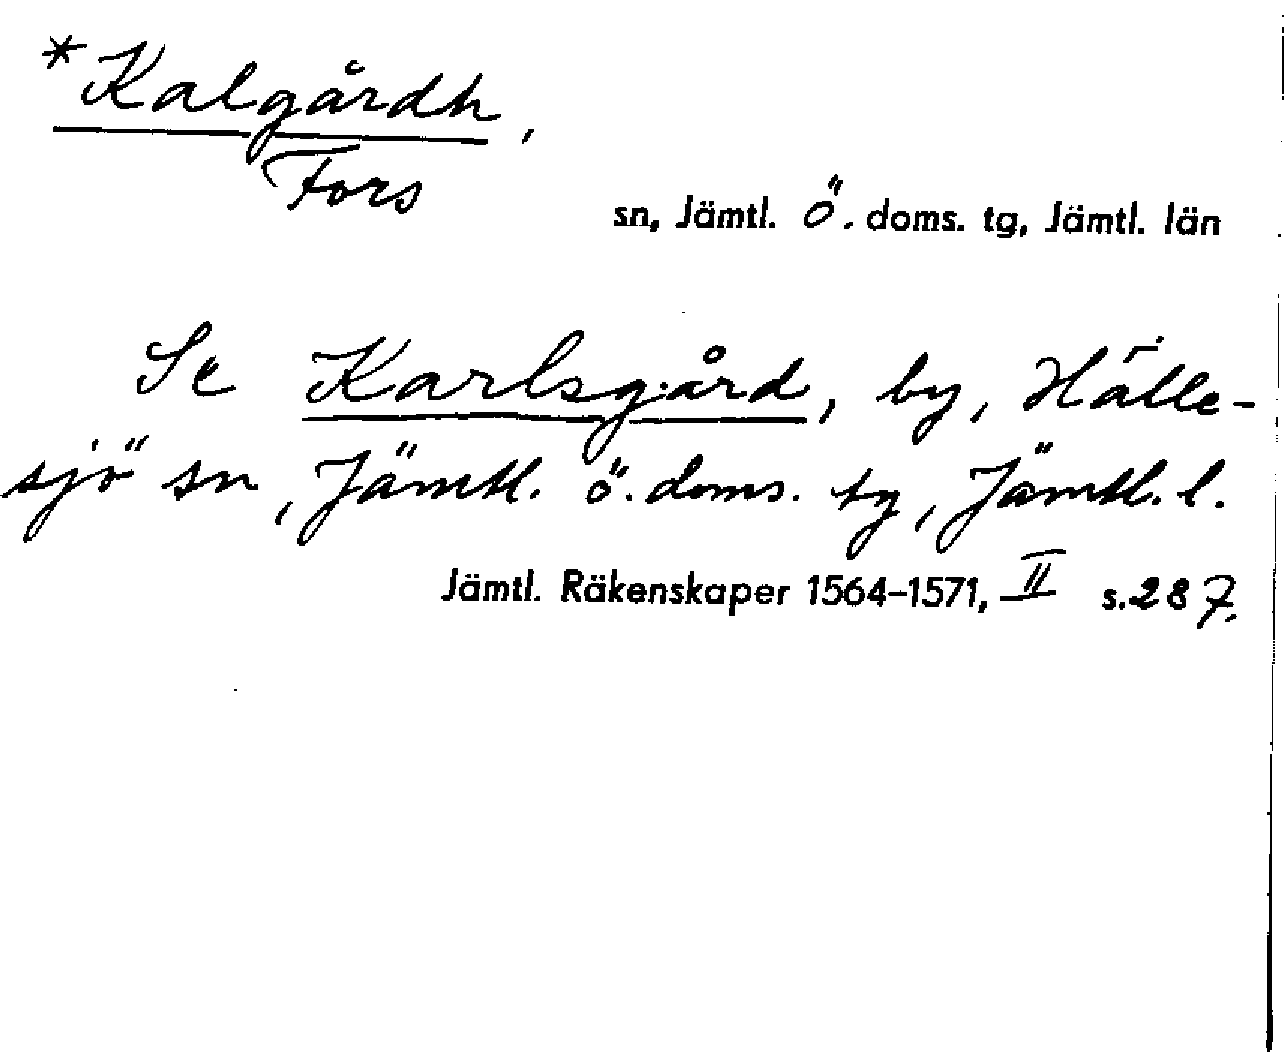 *Kalgårdh,
Fors
sn, Jämtl. Ö. doms. tg, Jämtl. län
Se Karlsgård, by, Hälle-
sjö sn, Jämtl. ö. doms. tg, Jämtl. l.
Jämtl. Räkenskaper 1564-1571, II s. 287.